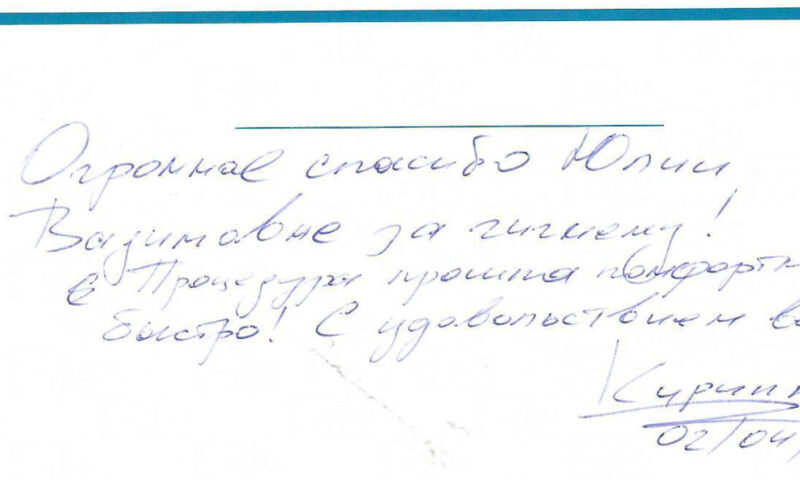 Огромное спасибо Юлии
Вадимовне за гигиену!
Процедура прошла комфортн
быстро! С удовольствием
Кирилл
02/04/